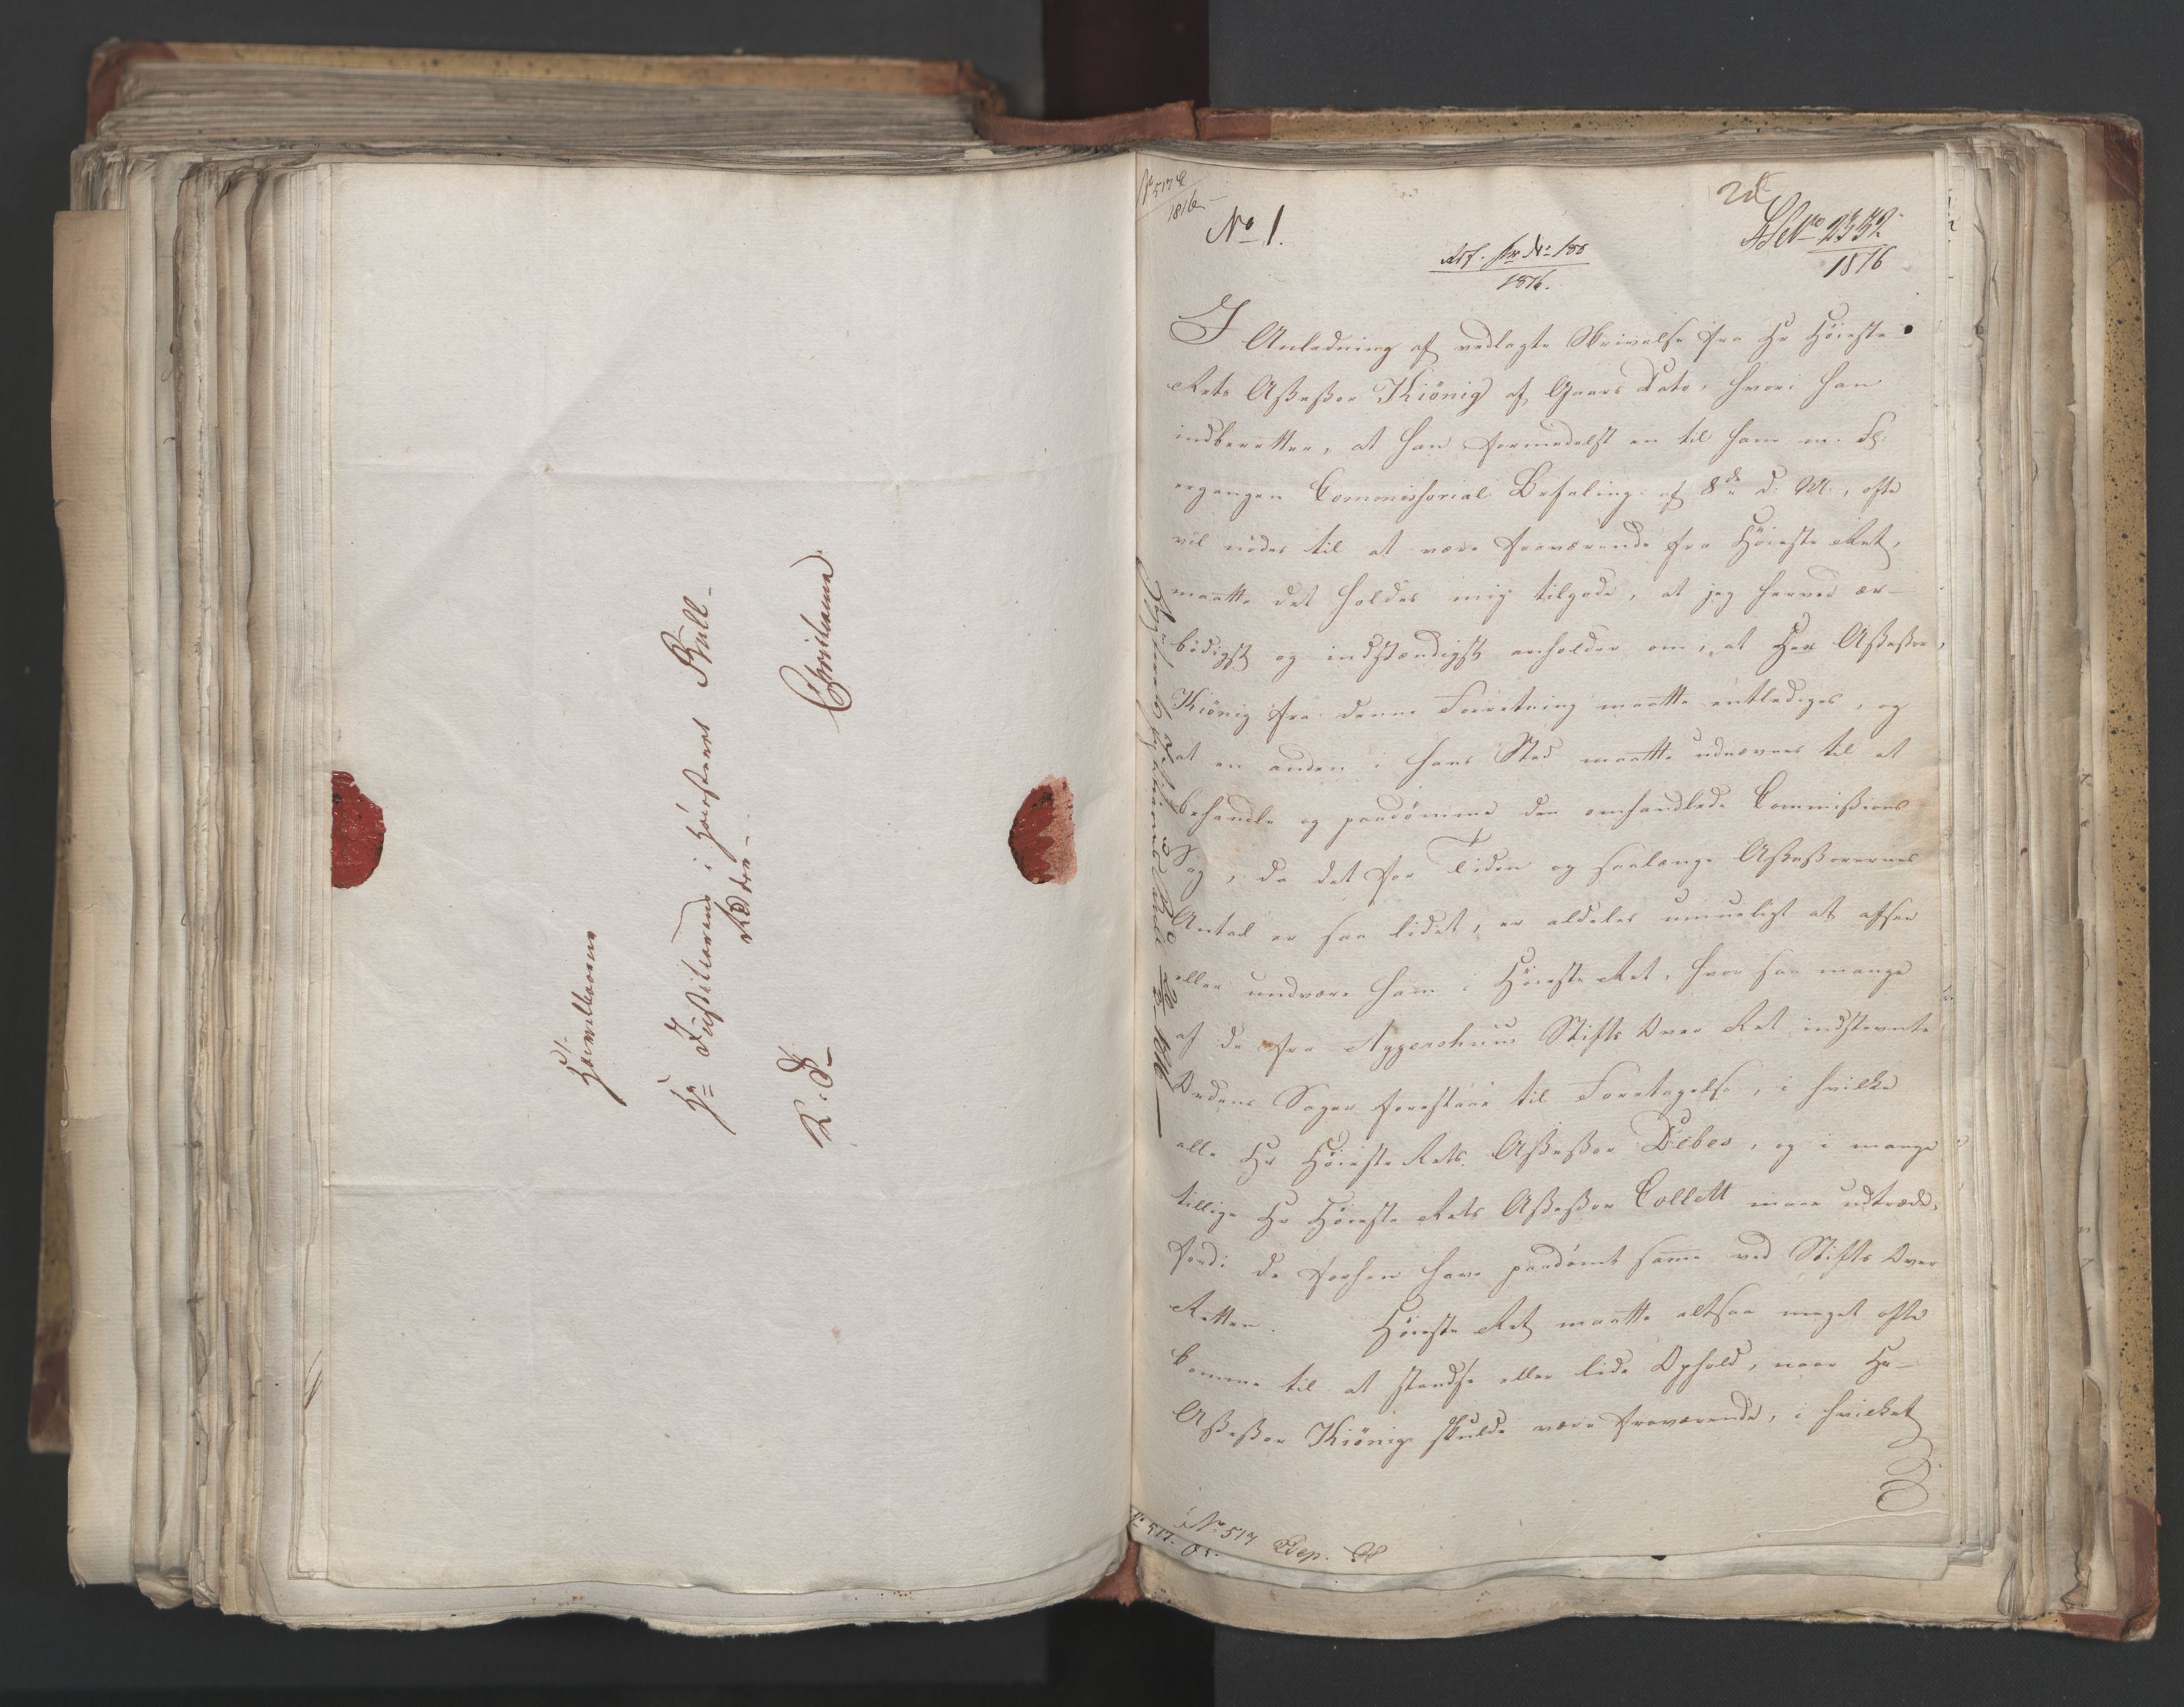 Høivelbaarne
Hr Justitiarius i Høiesteret Bull
Ridder
Christiania
No 517
1816
No 1.
Ref. No 180
1816.
No 2332
1816
I Anledning af vedlagte Skrivelse fra Hr Høieste
Rets Assessor Kiönig af Gaars Dato, hvori han
indberetter, at han formedelst en til ham m. Fl.
ergangen Commissorial Befaling af 8de d. M., ofte
vil nødes til at være fraværende fra Høieste Ret,
maatte det holdes mig tilgode, at jeg herved ær-
bödigst og indstændigst anholder om, at Herr Assessor
Kiönig fra denne Forretning maatte entlediges, og
at en anden i hans Sted maatte udnævnes til at
behandle og paadömme den omhandlede Commissions
Sag, da det for Tiden og saalænge Assessorernes
Antal er saa lidet, er aldeles umueligt at afsee
eller undvære ham i Höieste Ret, hvor saa mange
af de fra Aggershuus Stifts Over Ret indstevnte
Ordens Sager forestaae til Foretagelse, i hvilke
alle Hr Höieste Rets Assessor Debes, og i mange
tillige Hr Höieste Rets Assessor Collett maae udtræde,
fordi de forhen have paadömt samme ved Stifts Over
Retten. Höieste Ret maatte altsaa meget ofte
komme til at standse eller lide Ophold, naar Hr
Assessor Kiönig skulde være fraværende, i hvilket
1816
No 517 Dep.